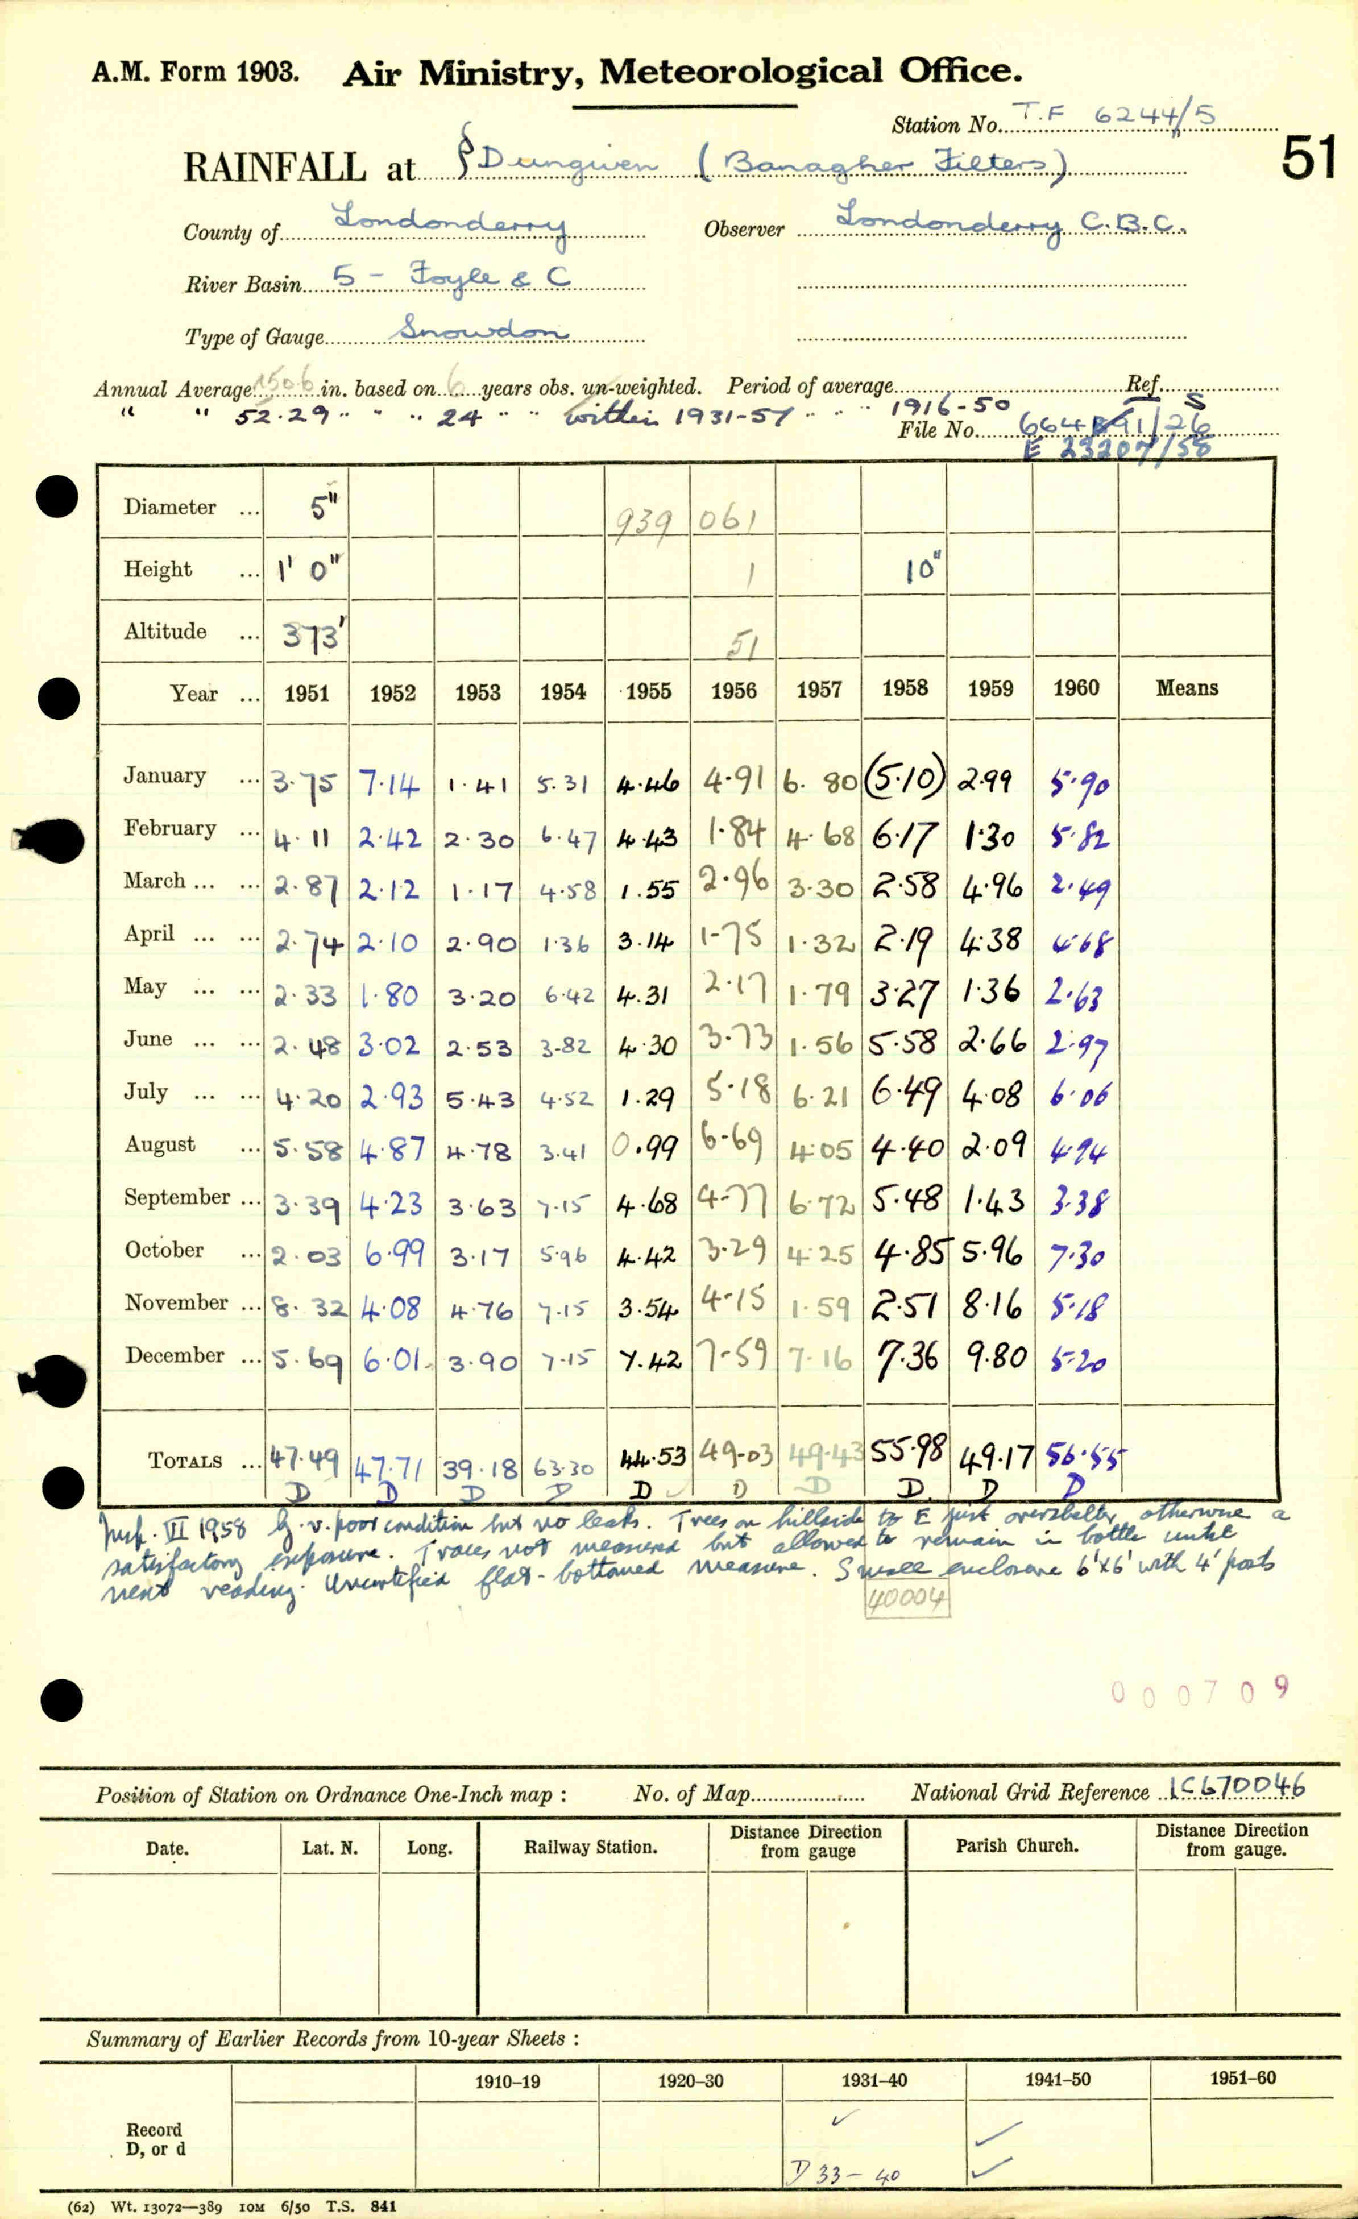 A.M. Form 1903. Air Ministry, Meteorological Office.
Station No. T.F 6244/5
51
RAINFALL at § Dungiven (Banagher Filters)
County of Londonderry Observer Londonderry C.B.C.
River Basin 5 - Foyle & C
Type of Gauge Snowdon
Annual Average 1506 in. based on 6 years obs. un-weighted. Period of average Ref. S
" " 52.29 " " " 24 " " within 1931-57 " " " 1916-50
File No. 664 1/26
E 23207/58
Diameter ... 5" 939 061
Height ... 1' 0" 1 10"
Altitude ... 373' 51
Year ... 1951 1952 1953 1954 1955 1956 1957 1958 1959 1960 Means
January ... 3.75 7.14 1.41 5.31 4.46 4.91 6.80 (5.10) 2.99 5.90
February ... 4.11 2.42 2.30 6.47 4.43 1.84 4.68 6.17 1.30 5.82
March ... ... 2.87 2.12 1.17 4.58 1.55 2.96 3.30 2.58 4.96 2.49
April ... ... 2.74 2.10 2.90 1.36 3.14 1-75 1.32 2.19 4.38 4.68
May ... ... 2.33 1.80 3.20 6.42 4.31 2.17 1.79 3.27 1.36 2.63
June ... ... 2.48 3.02 2.53 3-82 4.30 3.73 1.56 5.58 2.66 2.97
July ... ... 4.20 2.93 5.43 4.52 1.29 5.18 6.21 6.49 4.08 6.06
August ... 5.58 4.87 4.78 3.41 0.99 6-69 4.05 4.40 2.09 4.94
September ... 3.39 4.23 3.63 7.15 4.68 4-77 6.72 5.48 1.43 3.38
October ... 2.03 6.99 3.17 5.96 4.42 3-29 4.25 4.85 5.96 7.30
November ... 8.32 4.08 4.76 7.15 3.54 4-15 1.59 2.51 8.16 5.18
December ... 5.69 6.01 3.90 7.15 7.42 7-59 7.16 7.36 9.80 5.20
TOTALS ... 47.49 47.71 39.18 63.30 44.53 49-03 49.43 55.98 49.17 56.55
D D D D D D D D D D
Insp. VII 1958 G. v. poor condition but no leaks. Trees on hillside to E just oversheltr, otherwise a
satisfactory exposure. Traces not measured but allowed to remain in bottle until
next reading. Uncertified flat-bottomed measure. Small enclosure 6'x6' with 4' posts
40004
000709
Position of Station on Ordnance One-Inch map : No. of Map National Grid Reference IC670046
Date. Lat. N. Long. Railway Station. Distance Direction from gauge Parish Church. Distance Direction from gauge.
Summary of Earlier Records from 10-year Sheets :
1910–19 1920–30 1931–40 1941–50 1951–60
Record
D, or d
D 33 - 40
(62) Wt. 13072—389 10M 6/50 T.S. 841